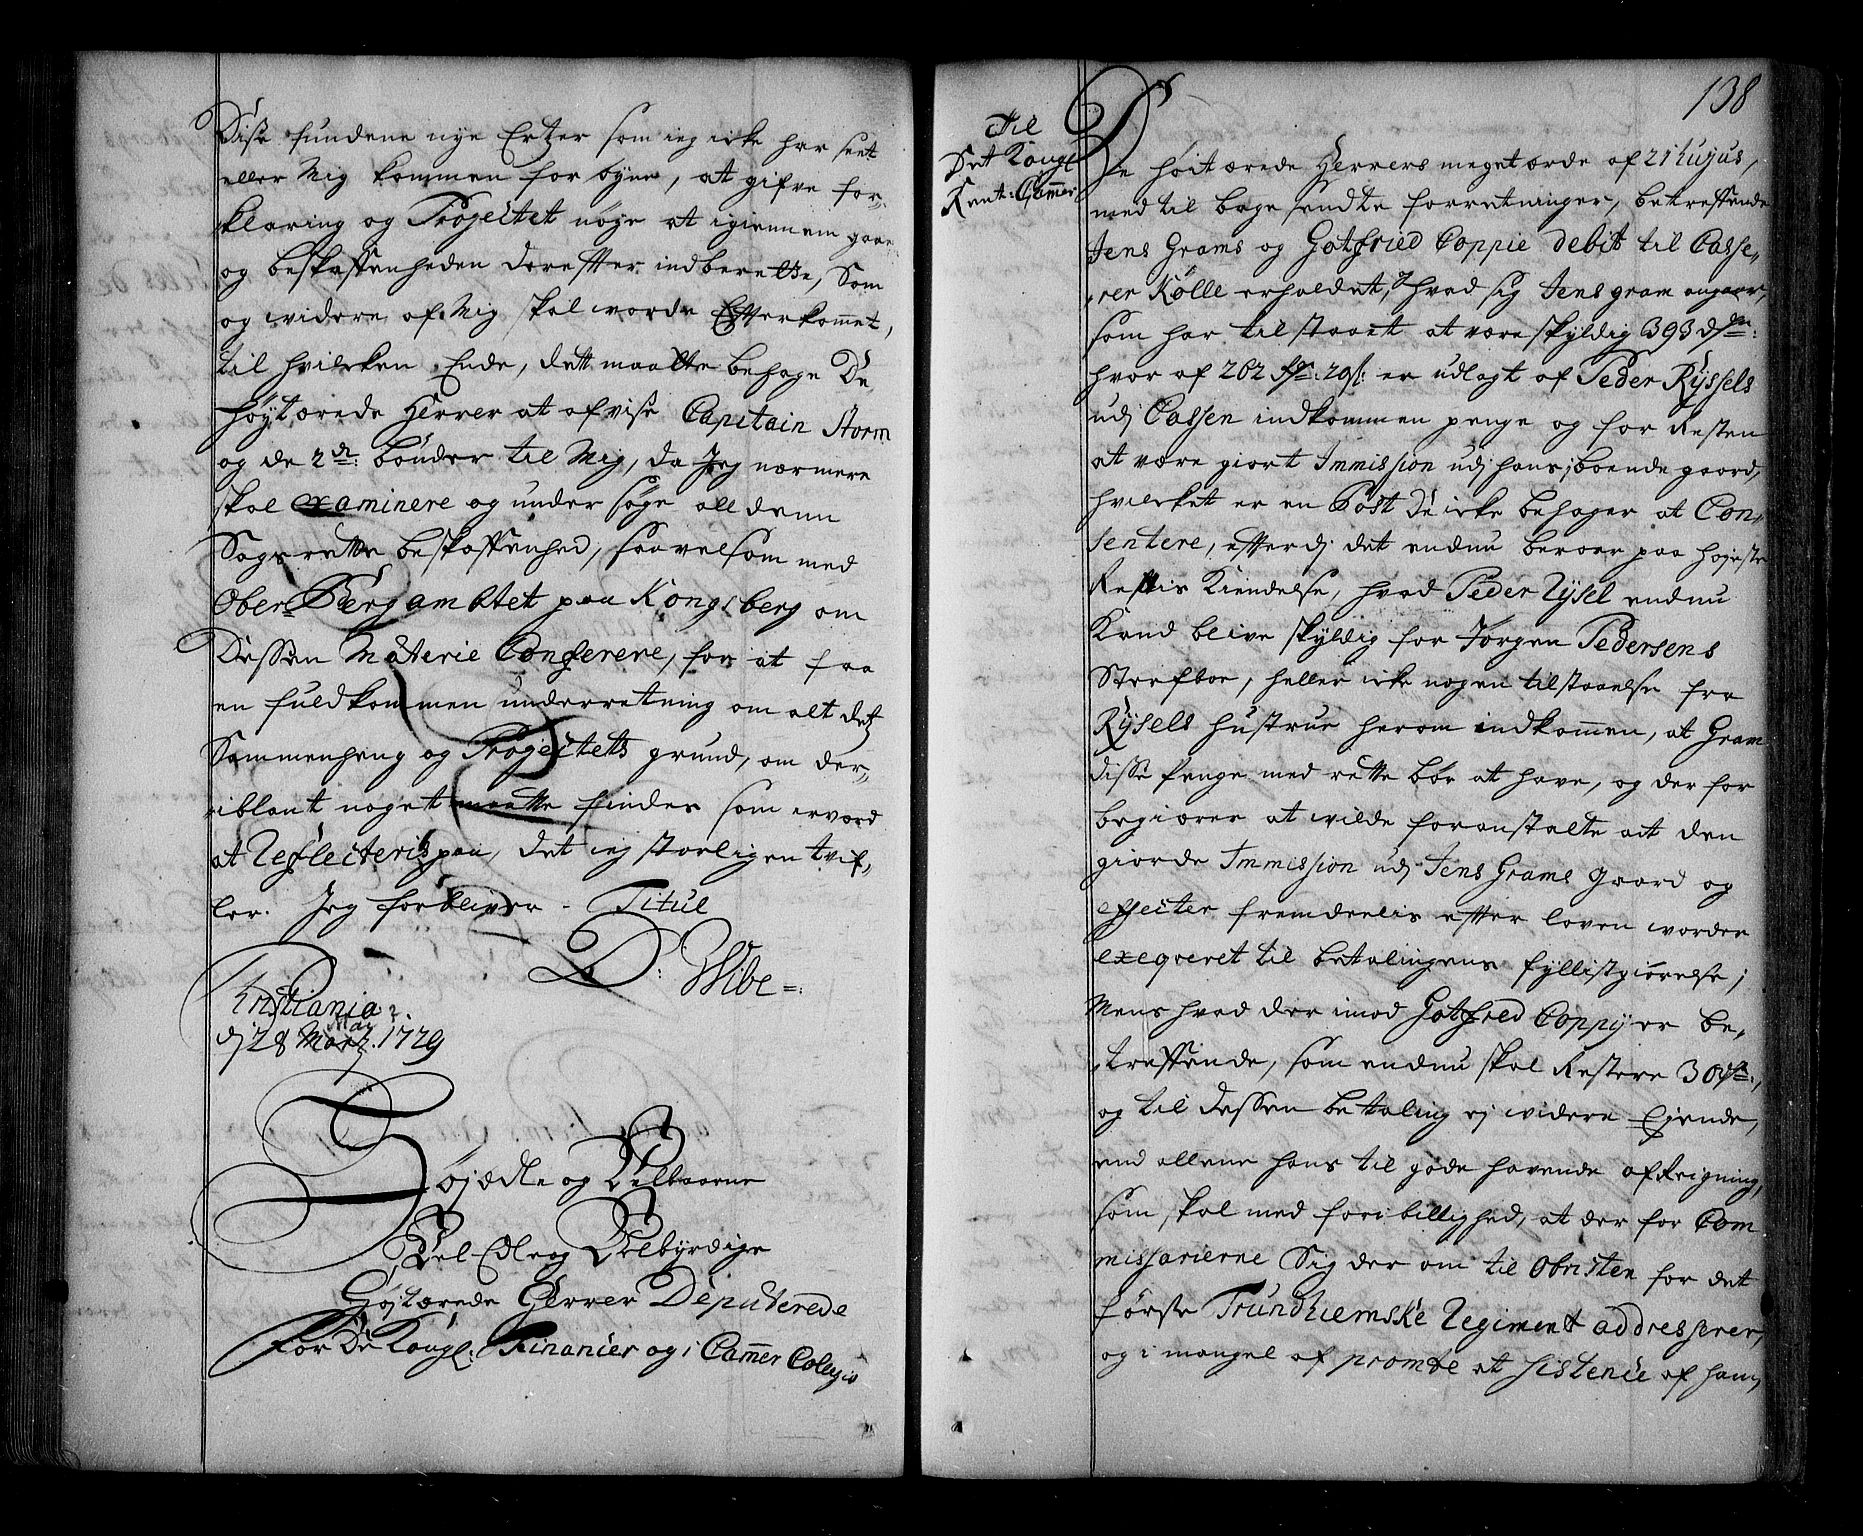 Disse fundene nye Ertzer som ieg icke har seet
eller Mig kommen for øyne, at gifve for-
klaring og Projectet nøye at igiennem gaae
og beskaffenheden derefter indberette, Som
og widere af Mig skal worde Efterkommet,
til hvilcken Ende, dett maatte behage De
høytærede Herrer at afvise Capitain Storm
og de 2de: bønder til Mig, da Jeg nærmere
skal examinere og undersøge all denne
Sags rette beskaffenhed, saavelsom med
Ober-BergambtEt paa Kongsberg om
Dessen Materie Conferere, for at faa
en fuldkommen underretning om alt det
Sammenheng og Projectets grund, om der-
iblant noget maatte findes som er værd
at Reflecteris paa, det iej storligen tvif-
ler. Jeg forbliver - Titul
D: Wibe
Christiania
d. 28 May 1729
Højædle og Velbaarne
Vel Edle og Velbyrdige
Højtærede Herrer Deputerede
For De Kongl: Financier og i Cammer Colegio
138
Til
Det Kongl
Rent: Cammer
De høit ærede Herrers meget ærede af 21 hujus,
med til bage sendte forretninger, betreffende
Jens Grams og Gotfried Coppie debit til Casse-
rer Kølle erholdet, hvad sig Jens Gram angaaer,
som har tilstaaet at være skyldig 393 dr:
hvor af 262 dr: 29 s: er udlagt af Peder Ryssels
udj Cassen indkommen penge og for Resten
at være giort Immission udj hans iboende gaard,
hvilcket er en Post De icke behager at Con-
sentere, efterdj det endnu beroer paa høyeste
Rettis Kiendelse, hvad Peder Rysel endnu
Kand blive skyldig for Jørgen Pedersens
Sterfboe, heller icke nogen tilstaaelse fra
Rysels hustrue herom indkommen, at Gram
disse Penge med rette bør at have, og der for
begiærer at wilde foranstalte at den
giorde Immission udj Jens Grams gaard og
effecter fremdeelis efter loven worder
exeqveret til betalingens fyllistgiørelse;
Mens hvad der imod Gotfred Coppy er be-
treffende, som endnu skal Restere 30 dr:,
og til dessen betaling ej widere Ejende,
end allene hans til gode havende afreigning,
som skal med foribillighed, at der for Com
missarierne Sig der om til Obristen for det
første Trundhiemske Regiment addresserer,
og i mangel af promte at sistence af ham,